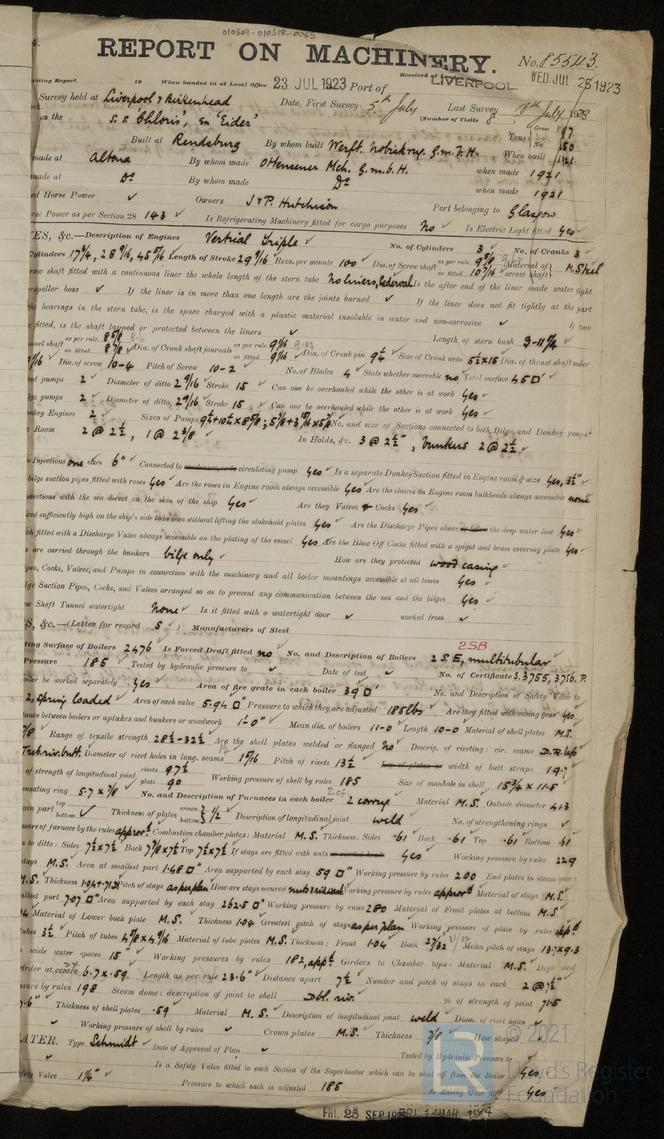 010509-010518-0065
REPORT ON MACHINERY.
No. 85543.
Writing Report 19 When handed in at Local Office 23 JUL 1923 Port of LIVERPOOL
Received at
WED. JUL 25 1923
Survey held at Liverpool & Birkenhead Date, First Survey 5th July Last Survey 18th July 1923
(Number of Visits 8
on the S.S. "Chloris", ex "Eider" Gross
Tons Net
Built at Rendsburg By whom built Werft. Nobiskrug. G.m.b.H. When built 1921
made at Altona By whom made Ottensener Mch. G.m.b.H. when made 1921
made at Do By whom made Do when made 1921
ed Horse Power Owners J & P. Hutchison Port belonging to Glasgow
Power as per Section 28 143 Is Refrigerating Machinery fitted for cargo purposes No Is Electric Light fitted Yes
ES, &c.—Description of Engines Vertical Triple No. of Cylinders 3 No. of Cranks 3
Cylinders 17 3/4, 28 9/16, 45 7/16 Length of Stroke 29 9/16 Revs. per minute 100 Dia. of Screw shaft as per rule as fitted 10 7/16 Material of screw shaft M. Steel
rew shaft fitted with a continuous liner the whole length of the stern tube No liners, Cederwall Is the after end of the liner made water tight
opeller boss If the liner is in more than one length are the joints burned If the liner does not fit tightly at the part
the bearings in the stern tube, is the space charged with a plastic material insoluble in water and non-corrosive If two
fitted, is the shaft lapped or protected between the liners Length of stern bush 3-11 3/4
nel shaft as per rule 8 5/8 as fitted 8 7/8 Dia. of Crank shaft journals as per rule 9 1/16 as fitted 9 7/16 Dia. of Crank pin 9 1/4 Size of Crank webs 5 1/2 x 15 Dia. of thrust shaft under
Dia. of screw 10-4 Pitch of Screw 10-2 No. of Blades 4 State whether moveable no Total surface 45 □'
ed pumps 2 Diameter of ditto 2 9/16 Stroke 15 Can one be overhauled while the other is at work Yes
ge pumps 2 Diameter of ditto 2 9/16 Stroke 15 Can one be overhauled while the other is at work Yes
nkey Engines 2 Sizes of Pumps No. and size of Suctions connected to both Bilge and Donkey pumps
Room 2 @ 2 1/2, 1 @ 2 3/8 In Holds, &c. 3 @ 2 1/2", bunkers 2 @ 2 1/2
Injections one sizes 6" Connected to circulating pump Yes Is a separate Donkey Suction fitted in Engine room & size Yes, 3 1/2"
bilge suction pipes fitted with roses Yes Are the roses in Engine room always accessible Yes Are the sluices on Engine room bulkheads always accessible none
nections with the sea direct on the skin of the ship Yes Are they Valves or Cocks Yes
xed sufficiently high on the ship's side to be seen without lifting the stokehold plates Yes Are the Discharge Pipes above the deep water line Yes
ch fitted with a Discharge Valve always accessible on the plating of the vessel Yes Are the Blow Off Cocks fitted with a spigot and brass covering plate Yes
s are carried through the bunkers bilge only How are they protected wood casing
pes, Cocks, Valves, and Pumps in connection with the machinery and all boiler mountings accessible at all times Yes
ge Suction Pipes, Cocks, and Valves arranged so as to prevent any communication between the sea and the bilges Yes
e Shaft Tunnel watertight None Is it fitted with a watertight door worked from
S, &c.—(Letter for record S) Manufacturers of Steel
2SB
ting Surface of Boilers 2476 Is Forced Draft fitted no No. and Description of Boilers 2 S.E, multitubular
Pressure 185 Tested by hydraulic pressure to Date of test No. of Certificate S.3755, 3756. R
oiler be worked separately Yes Area of fire grate in each boiler 39 □' No. and Description of Safety Valves to
2, spring loaded Area of each valve 5.94 □" Pressure to which they are adjusted 185 lbs Are they fitted with easing gear Yes
tance between boilers or uptakes and bunkers or woodwork 1'-0" Mean dia. of boilers 11-0 Length 10-0 Material of shell plates M.S.
7/8 Range of tensile strength 28 1/2-32 1/2 Are the shell plates welded or flanged no Descrip. of riveting: cir. seams D.R. lap
Treb. riv. butt. Diameter of rivet holes in long. seams 1 5/16 Pitch of rivets 13 1/2 width of butt straps 19.7
of strength of longitudinal joint rivets 97 1/2 plate 90 Working pressure of shell by rules 185 Size of manhole in shell 15 3/4 x 11.5
ensating ring 5.7 x 7/8 No. and Description of Furnaces in each boiler 2 corrug. Material M.S. Outside diameter 41.3
ain part top bottom Thickness of plates crown bottom 1/2 Description of longitudinal joint weld No. of strengthening rings
sure of furnace by the rules approvd Combustion chamber plates: Material M.S. Thickness: Sides .61 Back .61 Top .61 Bottom .61
s to ditto: Sides 7 1/2 x 7 1/2 Back 7 7/8 x 7 1/2 Top 7 1/2 x 7 1/2 If stays are fitted with nuts Yes Working pressure by rules 229
tays M.S. Area at smallest part 1.48 □" Area supported by each stay 59 □" Working pressure by rules 200 End plates in steam space:
M.S. Thickness Pitch of stays as per plan How are stays secured nuts & riveted Working pressure by rules approvd Material of stays M.S.
allest part 7.07 □" Area supported by each stay 262.5 □" Working pressure by rules 280 Material of Front plates at bottom M.S.
Material of Lower back plate M.S. Thickness 1.04 Greatest pitch of stays as per plan Working pressure of plate by rules appd
ubes 3 1/2 Pitch of tubes 4 7/8 x 4 9/16 Material of tube plates M.S. Thickness: Front 1.04 Back 27/32 Mean pitch of stays 13.7 x 9.3
wide water spaces 15" Working pressures by rules 182, appd Girders to Chamber tops: Material M.S. Depth and
girder at centre 6.7 x .59 Length as per rule 23.6" Distance apart 7 1/2 Number and pitch of stays in each 2 @ 7 1/2"
ssure by rules 198 Steam dome: description of joint to shell Dbl. riv. % of strength of joint 71.5
Thickness of shell plates .59 Material M.S. Description of longitudinal joint weld Diam. of rivet holes
Working pressure of shell by rules Crown plates M.S. Thickness 7/8 How stayed
ATER. Type Schmidt Date of Approval of Plan Tested by Hydraulic Pressure to
Is a Safety Valve fitted to each Section of the Superheater which can be shut off from the Boiler Yes
fety Valve 1 3/4" Pressure to which each is adjusted 185 Is Easing Gear Yes
© 2021
Lloyd's Register
Foundation
FRI. 25 SEP.